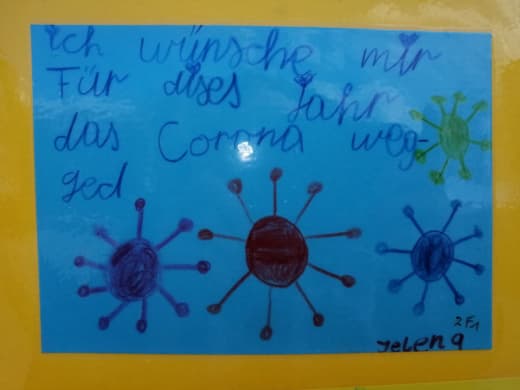 ich wünsche mir
Für dises Jahr
das Corona weg-
ged
2F1
Jelena